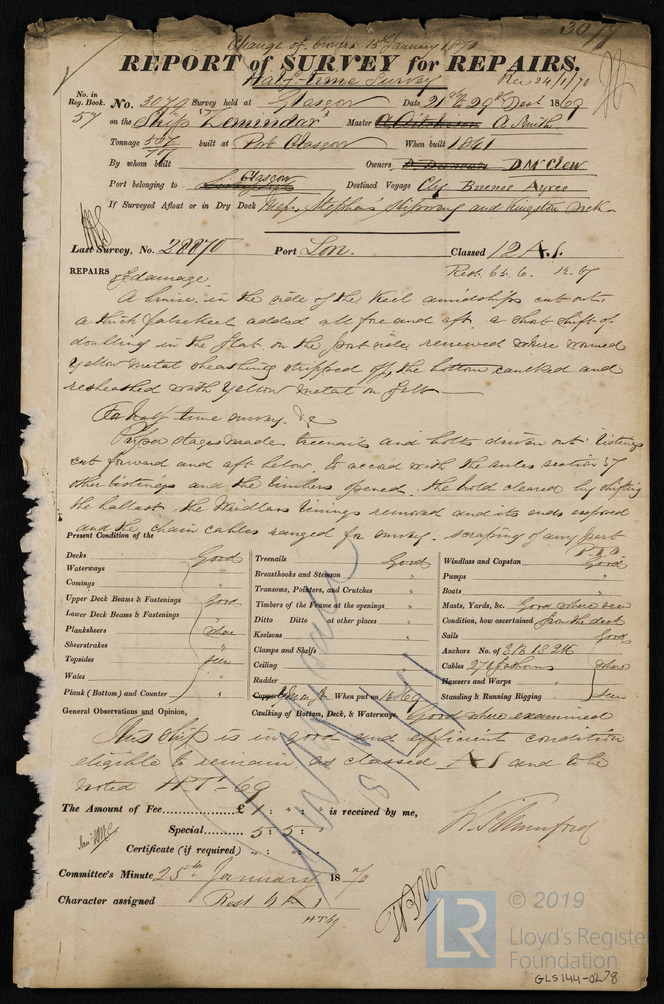 3077
Change of Owners 15 January 1870
REPORT of SURVEY for REPAIRS.
Half-time Survey Rec 24/1/70
No. in Reg. Book. 57 No. 3079 Survey held at Glasgow Date 21st & 29th Decr 1869
on the Ship "Zemindar" Master A Smith
Tonnage built at Port Glasgow When built 1861
By whom built Owners D McClew
Port belonging to Glasgow Destined Voyage Buenos Ayres
If Surveyed Afloat or in Dry Dock Messrs Stephens Slipway and Kingston Dock
Last Survey, No. 28870 Port Lon. Classed 12 A.1.
Rest. 65. 6. 12. 67
REPAIRS of damage
A bruise in the side of the Keel amidships cut out,
a thick falsekeel added all fore and aft, a short shift of
doubling in the flat on the port side renewed where wormed
Yellow metal sheathing stripped off, the bottom caulked and
resheathed with Yellow metal on felt
For half time survey. &c
Proper stages made treenails and bolts driven out listings
cut forward and aft below. to accord with the rules section 57
other listings and the timbers opened. the hold cleared by shifting
the ballast, the Windlass linings removed and its ends exposed
and the chain cables ranged for survey. scraping of any part
P.T.O.
Present Condition of the
Decks Good
Waterways "
Comings "
Upper Deck Beams & Fastenings Good
Lower Deck Beams & Fastenings
Planksheers where
Sheerstrakes
Topsides seen
Wales
Plank (Bottom) and Counter
Treenails Good
Breasthooks and Stemson "
Transoms, Pointers, and Crutches "
Timbers of the Frame at the openings "
Ditto Ditto at other places "
Keelsons "
Clamps and Shelfs "
Ceiling "
Rudder "
Copper When put on 12.69
Caulking of Bottom, Deck, & Waterways Good where examined
Windlass and Capstan Good
Pumps "
Boats "
Masts, Yards, &c. Good where seen
Condition, how ascertained from the deck
Sails Good
Anchors No. of 3B 1S 2K
Cables 270 fathoms where
Hawsers and Warps "
Standing & Running Rigging seen
General Observations and Opinion,
This ship is in good and efficient condition
eligible to remain as classed A1 and to be
noted H.T-69
The Amount of Fee............£ " : " : " is received by me,
Special......... 5 : 5 : "
Certificate (if required) " : " : "
Committee's Minute 25th January 1870
Character assigned Rest A 1
H.T 69
LR
© 2019
Lloyd's Register
Foundation
GLS144-0278